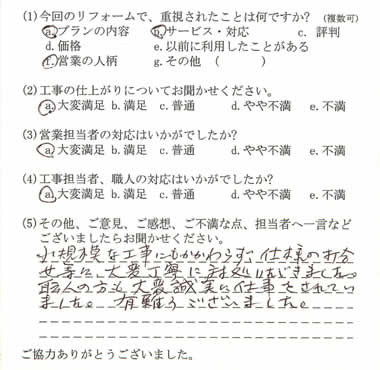 (1)今回のリフォームで、重視されたことは何ですか? (複数可)
a.プランの内容 b.サービス・対応 c. 評判
d.価格 e.以前に利用したことがある
f.営業の人柄 g.その他 ( )
(2)工事の仕上がりについてお聞かせください。
a.大変満足 b.満足 c.普通 d.やや不満 e.不満
(3)営業担当者の対応はいかがでしたか?
a.大変満足 b.満足 c.普通 d.やや不満 e.不満
(4)工事担当者、職人の対応はいかがでしたか?
a.大変満足 b.満足 c.普通 d.やや不満 e.不満
(5)その他、ご意見、ご感想、ご不満な点、担当者へ一言など
ございましたらお聞かせください。
小規模な工事にもかかわらず、仕様の打合
せ等に、大変丁寧に対処いただきました。
職人の方も大変誠実に仕事をされてい
ました。 有難うございました。
ご協力ありがとうございました。